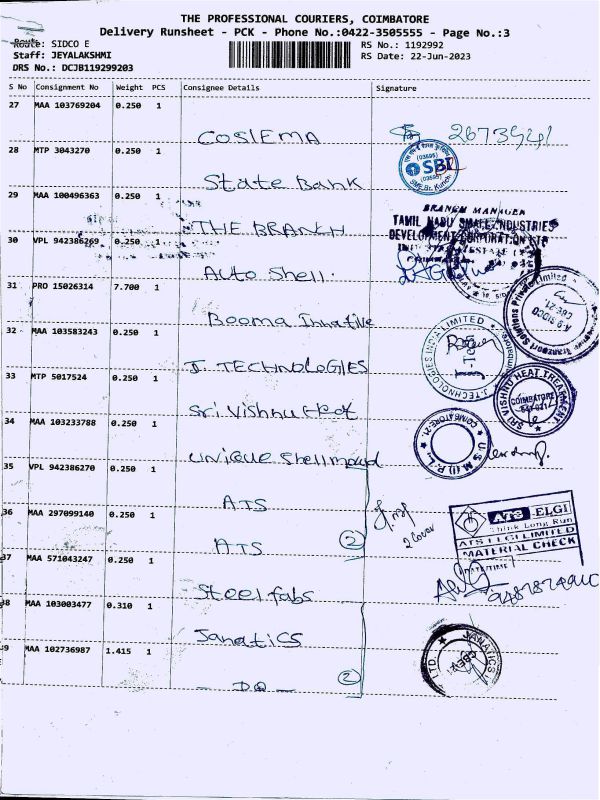 THE PROFESSIONAL COURIERS, COIMBATORE
Delivery Runsheet - PCK - Phone No.:0422-3505555 - Page No.:3
Route: SIDCO E
RS No.: 1192992
Staff: JEYALAKSHMI
RS Date: 22-Jun-2023
DRS No.: DCJB119299203
S No Consignment No Weight PCS Consignee Details Signature
27 MAA 103769204 0.250 1
COSIEMA
28 MTP 3043270 0.250 1
SBI
State Bank
29 MAA 100496363 0.250 1
BRANCH MANAGER
TAMIL NADU SMALL INDUSTRIES
DEVELOPMENT CORPORATION LTD
THE BRANCH
30 VPL 942386269 0.250 1
Auto Shell.
31 PRO 15026314 7.700 1
Booma Innative
32 MAA 103583243 0.250 1
J. TECHNOLOGIES
J. TECHNOLOGIES INDIA LIMITED
33 MTP 5017524 0.250 1
SRI VISHNU HEAT TREATMENT
COIMBATORE
641 021
Sri Vishnu Heat
34 MAA 103233788 0.250 1
U S M (I) P. L.
COIMBATORE-21.
unique shellmould
35 VPL 942386270 0.250 1
ATS
36 MAA 297099140 0.250 1
ATS ELGI
Think Long Run
ATS ELGI LIMITED
MATERIAL CHECK
DATE/TIME
2 cover
ATS
2
37 MAA 571043247 0.250 1
Steelfabs
38 MAA 103003477 0.310 1
Janatics
39 MAA 102736987 1.415 1
JANATICS
LTD.
- DO -
2